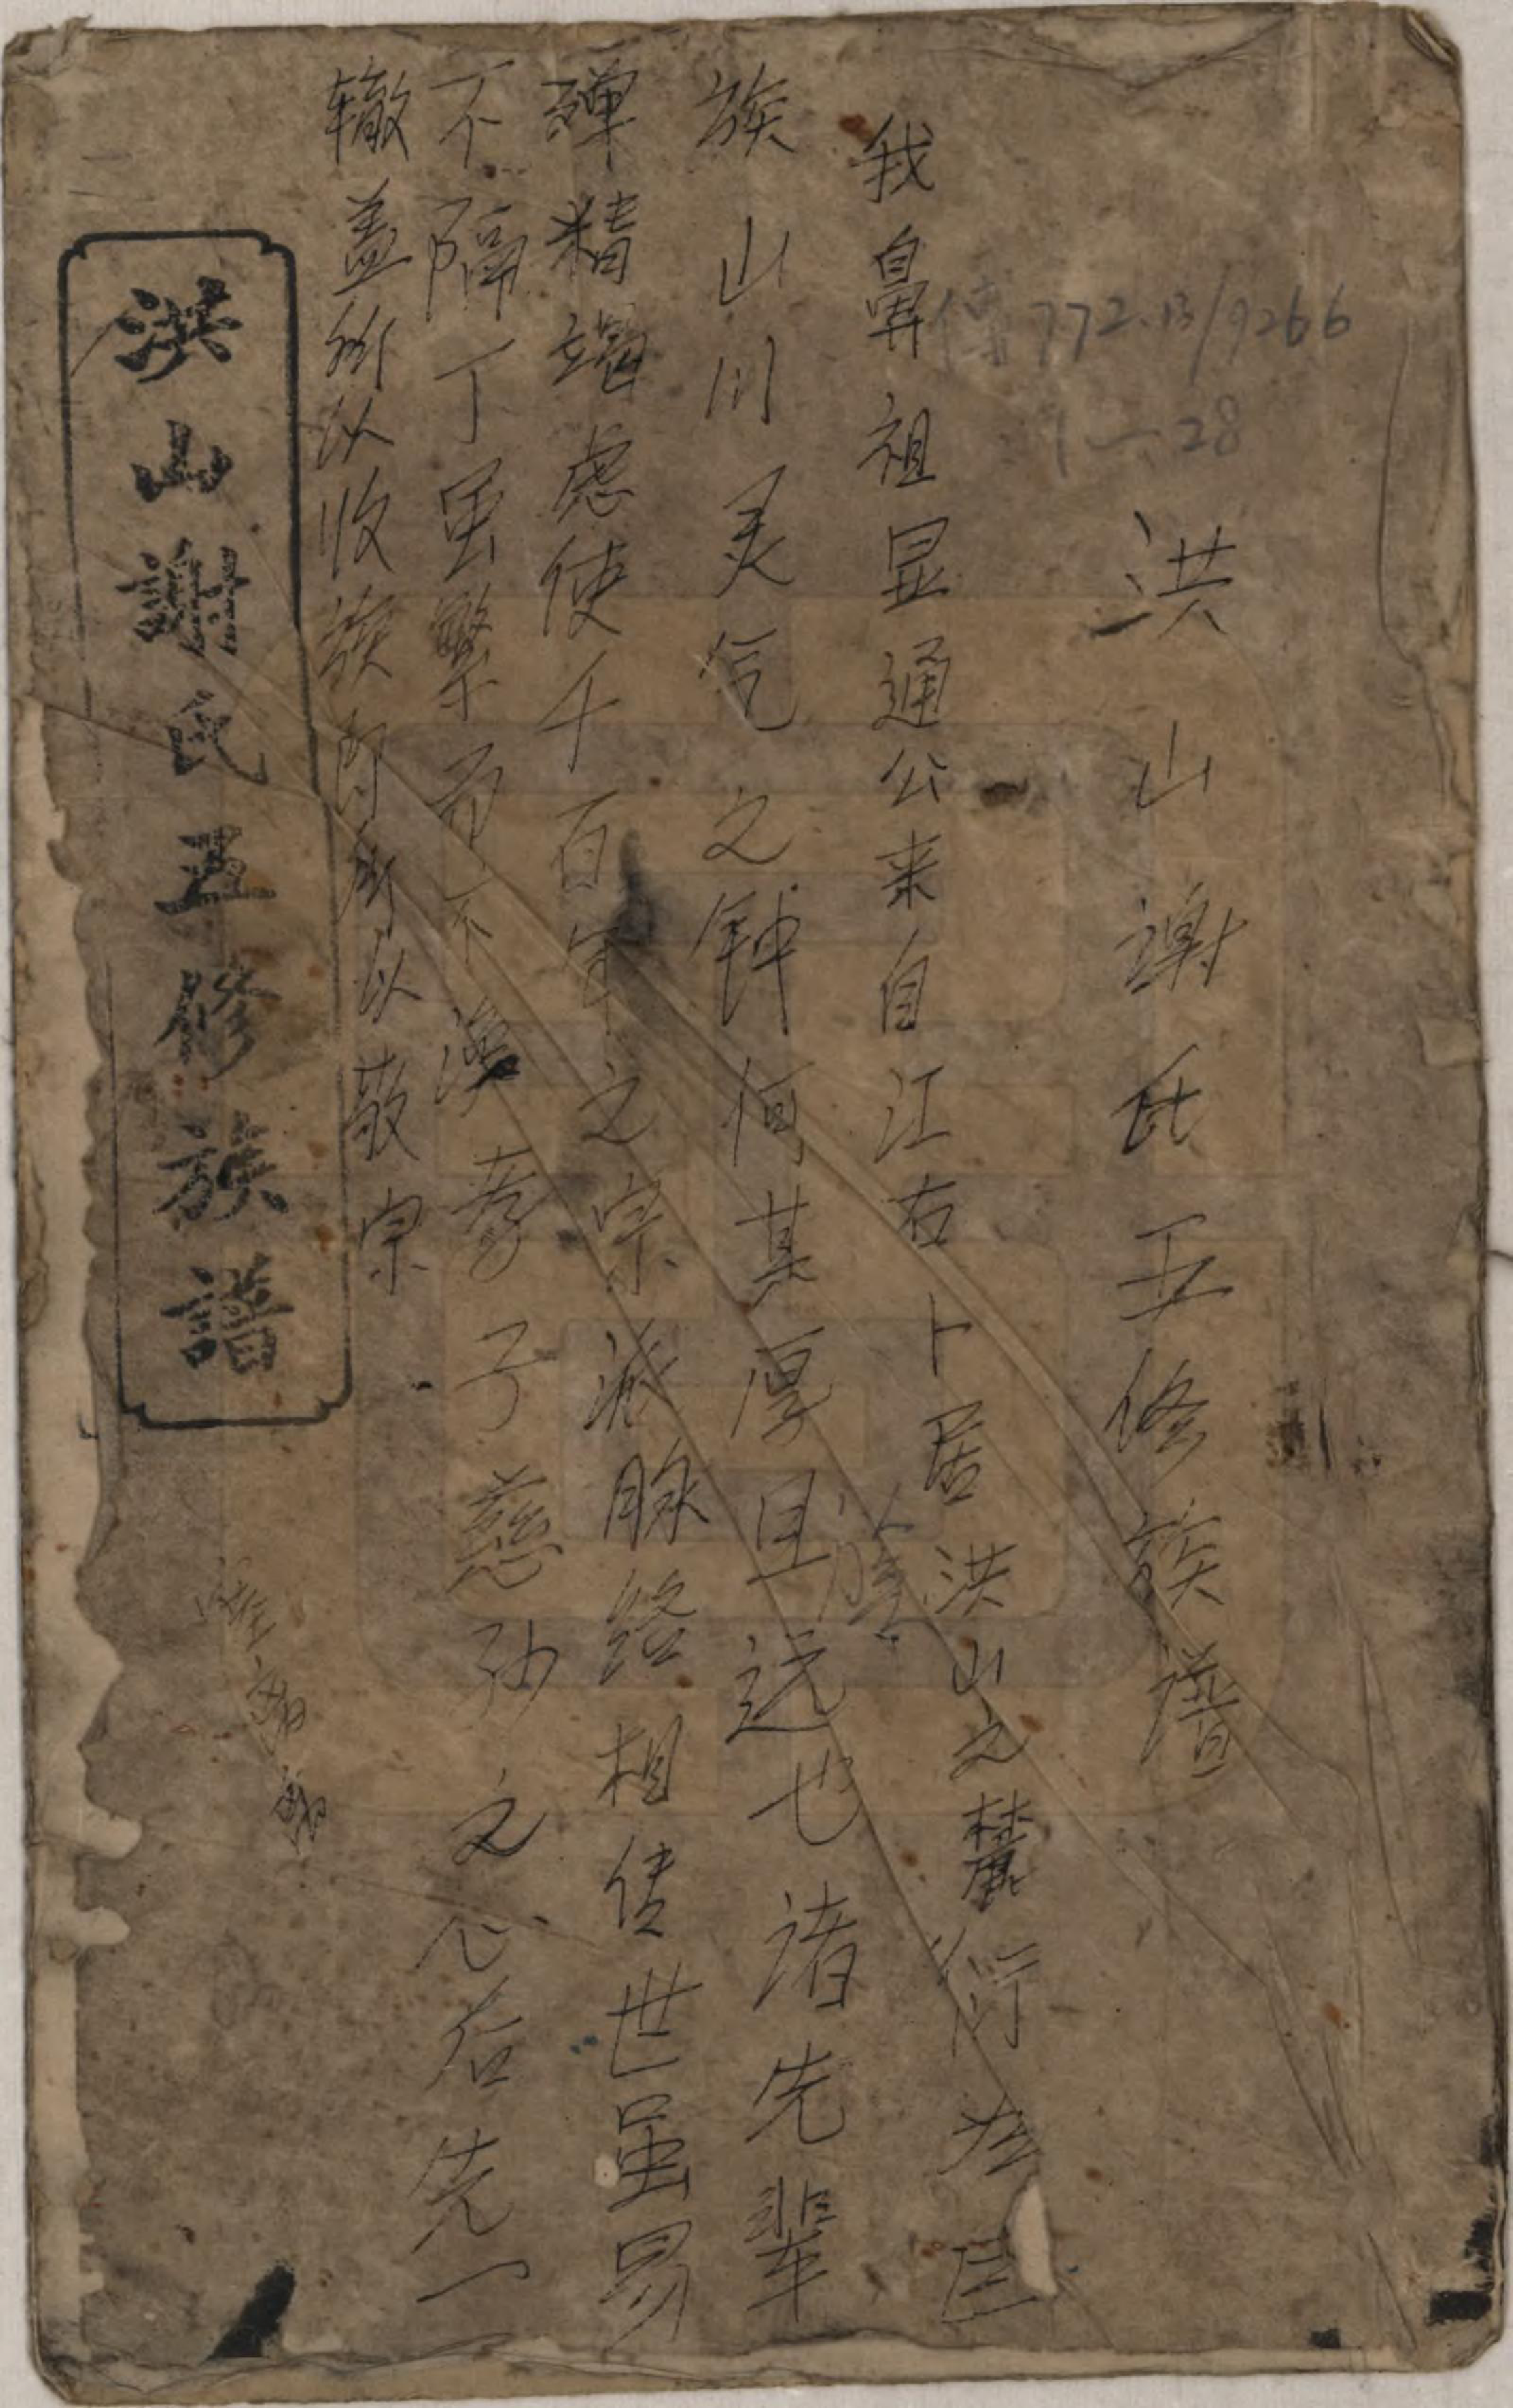 洪山謝氏五修族谱
772.13/9266
1—28
我鼻祖显通公来自江右卜居洪山之麓衍为巨
族山川灵气之钟何其厚且远也诸先辈
殫精竭虑使千百年之宗派脉络相传世虽易
不隔丁虽繁而不涣孝子慈孙之心后先一
辙盖所以收族即所以敬宗
洪山謝氏五修族譜